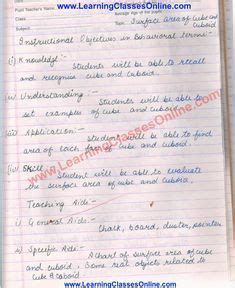 www.LearningClassesOnline.com
Pupil Teacher's Name
Class
Subject
Average Age of the pupil
Topic Surface area of cube and cuboid
Instructional Objectives in Behavioral terms:-
(i) Knowledge:-
Students will be able to recall
and recognise cube and cuboid.
(ii) Understanding:-
Students will be able to
set examples of cube and cuboid.
(iii) Application:-
Students will be able to find
area of each face of cube and cuboid.
(iv) Skill
Students will be able to evaluate
the surface area of cube and cuboid.
Teaching Aids:-
i) General Aids:-
chalk, board, duster, pointer
ii) Specific Aids:-
A chart of surface area of cube
and cuboid, Some real objects related to
cube & cuboid.
www.LearningClassesOnline.com